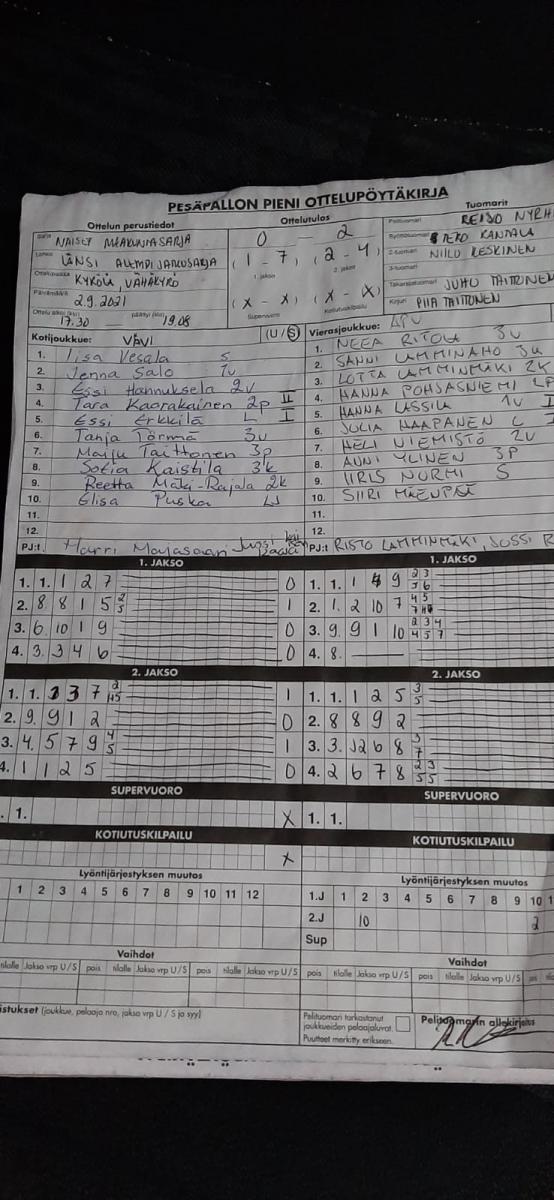 PESÄPALLON PIENI OTTELUPÖYTÄKIRJA
Ottelun perustiedot
Ottelutulos
Tuomarit
NAISET MAAKUNTASARJA
0 — 2
Pelituomari REIJO NYRH
LÄNSI ALEMPI JATKOSARJA
(1 - 7) (2 - 4)
TERO KANTALA
1. jakso 2. jakso
2-tuomari NIILO KESKINEN
Ottelupaikka KYRÖLÄ, VÄHÄKYRÖ
3-tuomari
Päivämäärä 2.9.2021
(X - X) (X - X)
Takarajatuomari JUHO TAITTONEN
Supervuoro Kotiutuskilpailu
Kirjuri PIIA TAITTONEN
Ottelu alkoi (klo) 17.30 — päättyi (klo) 19.08
Kotijoukkue: VÄVI (U/S)
Vierasjoukkue: APV
1. Iisa Vesala S
2. Jenna Salo 1v
3. Essi Hannuksela 2v
4. Tara Kaorakainen 2p II
5. Essi Erkkilä L I
6. Tanja Törmä 3v
7. Maiju Taittonen 3p
8. Sofia Kaistila 3k
9. Reetta Mäki-Rajala 2k
10. Elisa Puska LJ
11.
12.
1. NEEA RITOLA 3v
2. SANNI LAMMINAHO 3k
3. LOTTA LAMMINMÄKI 2K
4. HANNA POHJASNIEMI LP
5. HANNA LASSILA 1v I
6. JULIA HAAPANEN L I
7. HELI NIEMISTÖ 2v
8. AUNI YLINEN 3P
9. IIRIS NURMI S
10. SIIRI MÄENPÄÄ
11.
12.
PJ:t Harri Moyasaari
PJ:t RISTO LAMMINMÄKI, JUSSI R
1. JAKSO
1. 1. 1 2 7 0
2. 8 8 1 5 2 5 1
3. 6 10 1 9 0
4. 3 3 4 6 0
1. JAKSO
1. 1. 1 4 9 2 3 3 6
2. 1. 2 10 7 4 5
3. 9 9 1 10 2 3 4 4 5 7
4. 8. —
2. JAKSO
1. 1. 3 3 7 1
2. 9. 9 1 2 0
3. 4. 5 7 9 4 5 1
4. 1 1 2 5 0
2. JAKSO
1. 1. 1 2 5 3 5
2. 8 8 9 2
3. 3. J2 6 8 3 7
4. 2 6 7 8 2 3 5 5
SUPERVUORO
1. X
SUPERVUORO
1. 1.
KOTIUTUSKILPAILU
X
KOTIUTUSKILPAILU
Lyöntijärjestyksen muutos
1 2 3 4 5 6 7 8 9 10 11 12
Lyöntijärjestyksen muutos
1.J 1 2 3 4 5 6 7 8 9 10 1
2.J 10 2
Sup
Vaihdot
tilalle Jakso vrp U / S pois tilalle Jakso vrp U / S pois tilalle Jakso vrp U / S
Vaihdot
pois tilalle Jakso vrp U / S pois tilalle Jakso vrp U / S
istukset (joukkue, pelaaja nro, jakso vrp U / S ja syy)
Pelituomari tarkastanut joukkueiden pelaajaluvat.
Puutteet merkitty erikseen.
Pelituomarin allekirjoitus